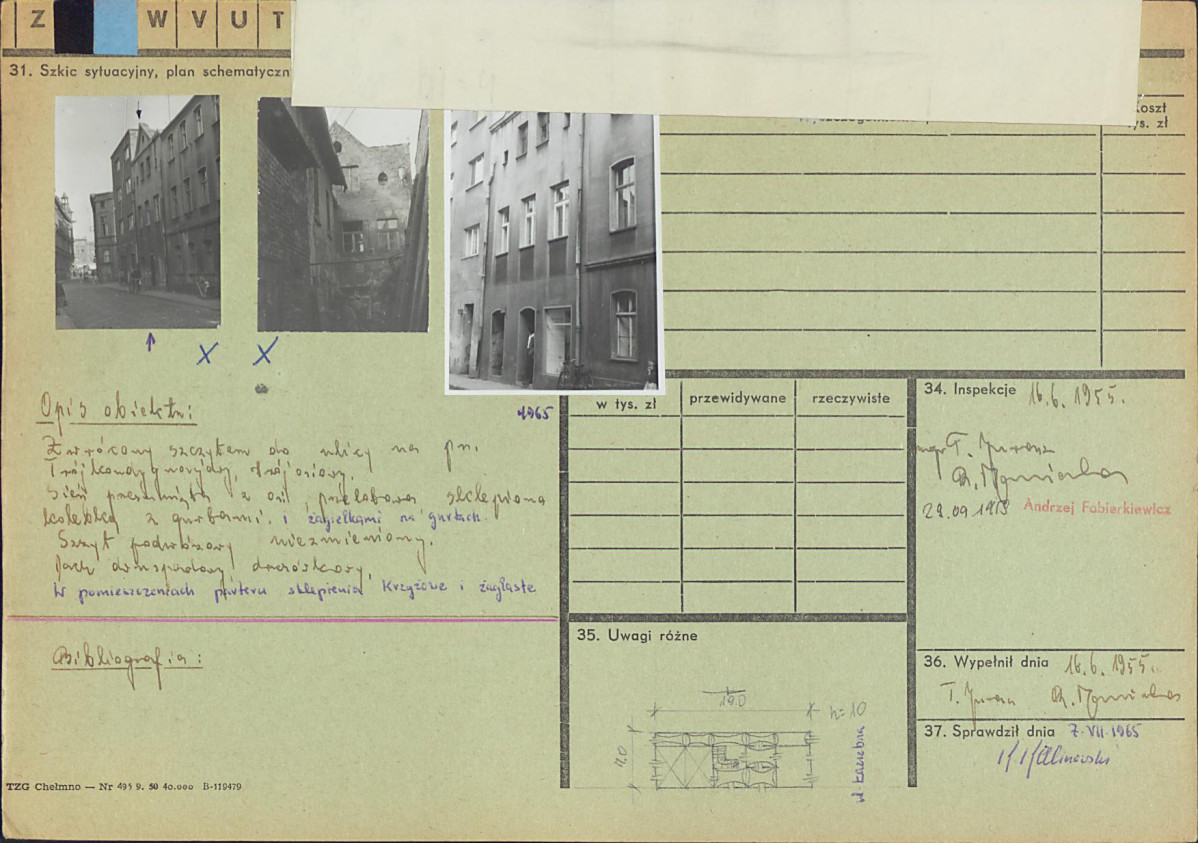 Z W V U T
31. Szkic sytuacyjny, plan schematyczn
Koszt
tys. zł
Opis obiektu:
1965
Zwrócony szczytem do ulicy na pn.
Trójkondygnacyjny, trójosiowy.
Sień przesunięta z osi, przelotowa sklepiona
kolebką z gurtami. i żagielkami na gurtach.
Szczyt podwórzowy niezmieniony.
Dach dwuspadowy
W pomieszczeniach parteru sklepienia krzyżowe i żaglaste
Bibliografia:
TZG Chełmno — Nr 495 9. 50 40.000 B-119479
w tys. zł przewidywane rzeczywiste
35. Uwagi różne
19.0
h=10
12.0
ul. Łazienna
34. Inspekcje 16.6.1955.
mgr T.
Andrzej Fabierkiewicz
36. Wypełnił dnia 16.6.1955.
T.
37. Sprawdził dnia 7.VII.1965
Kalinowski